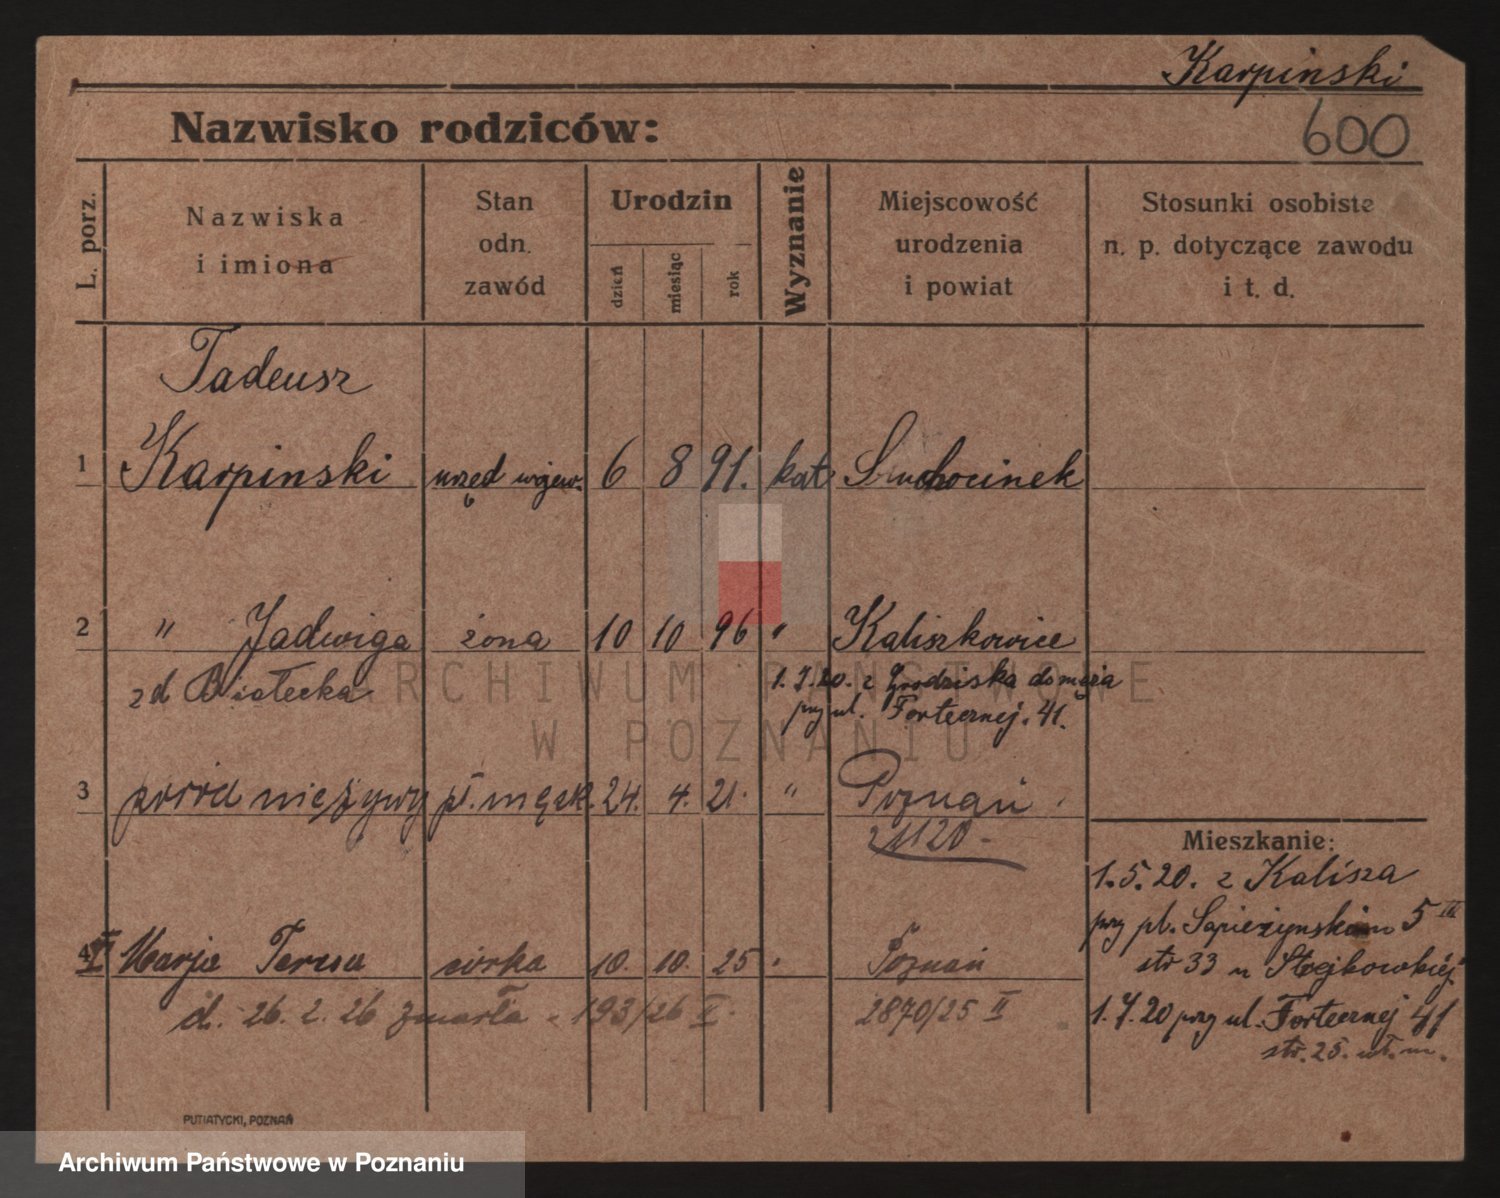 Karpinski
Nazwisko rodziców:
600
L. porz.
Nazwiska
i imiona
Stan
odn.
zawód
Urodzin
dzień
miesiąc
rok
Wyznanie
Miejscowość
urodzenia
i powiat
Stosunki osobiste
n. p. dotyczące zawodu
i t. d.
Tadeusz
1 Karpinski urzęd wojew. 6 8 91. kat Suchocinek
2 " Jadwiga żona 10 10 96 " Kaliszkowice
z d Białecka
1.7.20. z Grodziska do męża
przy ul. Fortecznej. 41.
3 poród nieżywy pł. męsk. 24. 4. 21. " Poznań
1120 -
Mieszkanie:
1.5.20. z Kalisza
przy pl. Sapieżynskim 5 III
str 33 u
1.7.20 przy ul. Fortecznej 41
str. 25. wł. m.
4 Marja Teresa córka 10. 10. 25 " Poznań
d. 26. 2. 26 zmarła - 193/26 II.
2870/25 II
PUTIATYCKI, POZNAŃ
ARCHIWUM PAŃSTWOWE
W POZNANIU
Archiwum Państwowe w Poznaniu